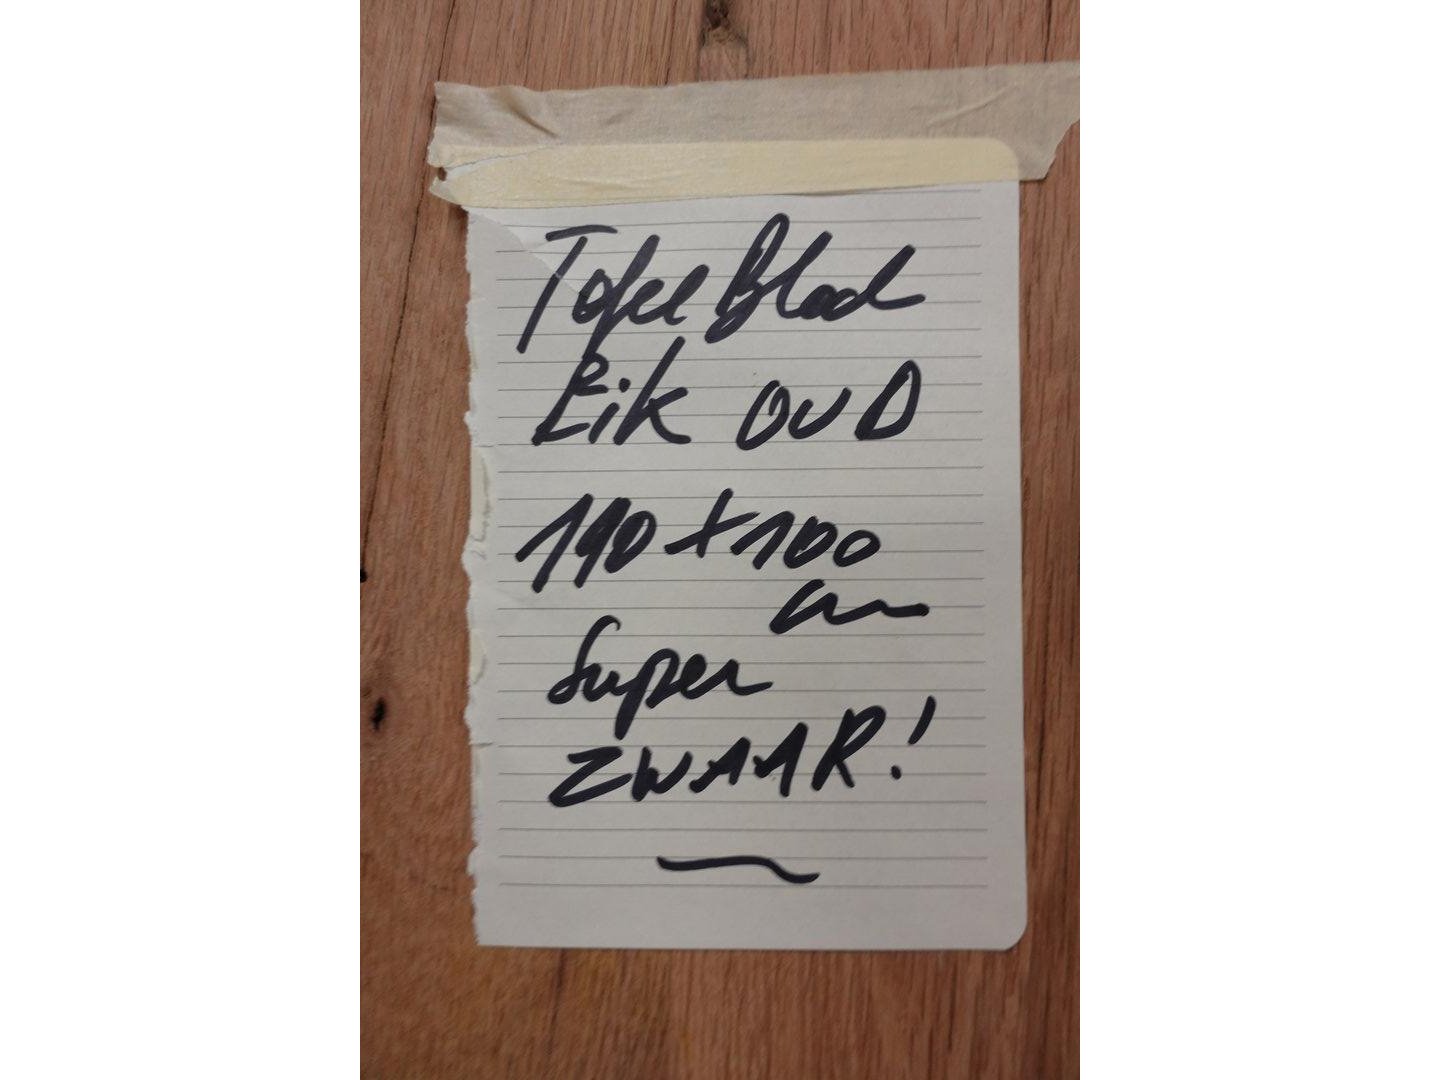 Tafel Blad
Eik OUD
190 x 100
cm
Super
ZWAAR!